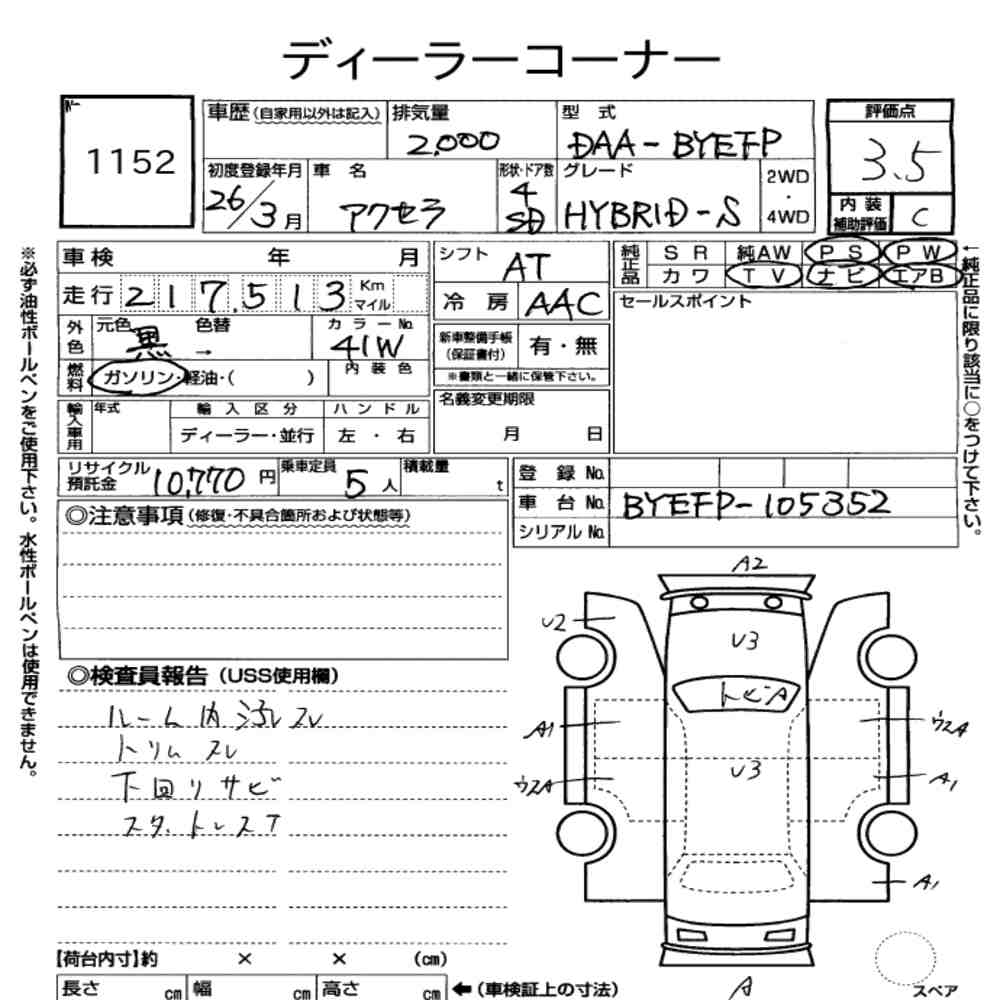 ディーラーコーナー
№
1152
車歴(自家用以外は記入) 排気量 2,000 型 式 DAA-BYEFP
初度登録年月 26/3月 車 名 アクセラ 形状・ドア数 4 SD グレード HYBRID-S 2WD ・ 4WD
評価点
3.5
内装補助評価 C
※必ず油性ボールペンをご使用下さい。水性ボールペンは使用できません。
車検 年 月
走行 217,513 Km マイル
外色 元色 黒 色替 → カラーNo. 41W
燃料 ガソリン・軽油・( ) 内装色
輸入車用 年式 輸入区分 ハンドル
ディーラー・並行 左・右
シフト AT
冷房 AAC
新車整備手帳(保証書付) 有・無
※書類と一緒に保管下さい。
名義変更期限
月 日
純正品 SR 純AW PS PW
カワ TV ナビ エアB
セールスポイント
←純正品に限り該当に○をつけて下さい。
リサイクル預託金 10,770円 乗車定員 5人 積載量 t
登録No.
車台No. BYEFP-105352
シリアルNo.
◎注意事項(修復・不具合箇所および状態等)
◎検査員報告(USS使用欄)
ルーム内汚レスレ
トリムスレ
下回リサビ
スタ.トレスT
A2
U2
U3
トビA
A1
ウスA
U3
ウスA
A1
A1
A
スペア
【荷台内寸】約 × × (cm)
長さ cm 幅 cm 高さ cm ←(車検証上の寸法)